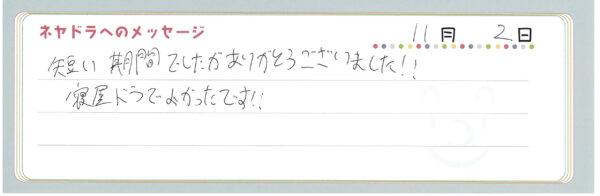 ネヤドラへのメッセージ
11月 2日
短い期間でしたがありがとうございました!!
寝屋ドラでよかったです!!